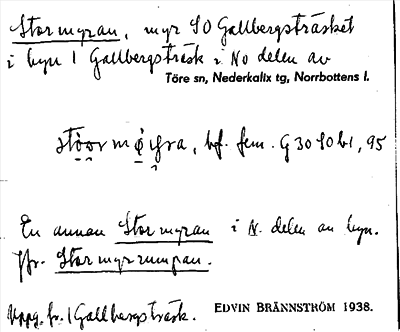 Stormyran, myr SO Gallbergsträsket
i byn 1 Gallbergsträsk i No delen av
Töre sn, Nederkalix tg, Norrbottens l.
bf. fem. G 30 SO b1, 95
En annan Stormyran i N. delen av byn.
Jfr. Stormyrrumpan.
Uppg. fr. 1 Gallbergsträsk. EDVIN BRÄNNSTRÖM 1938.